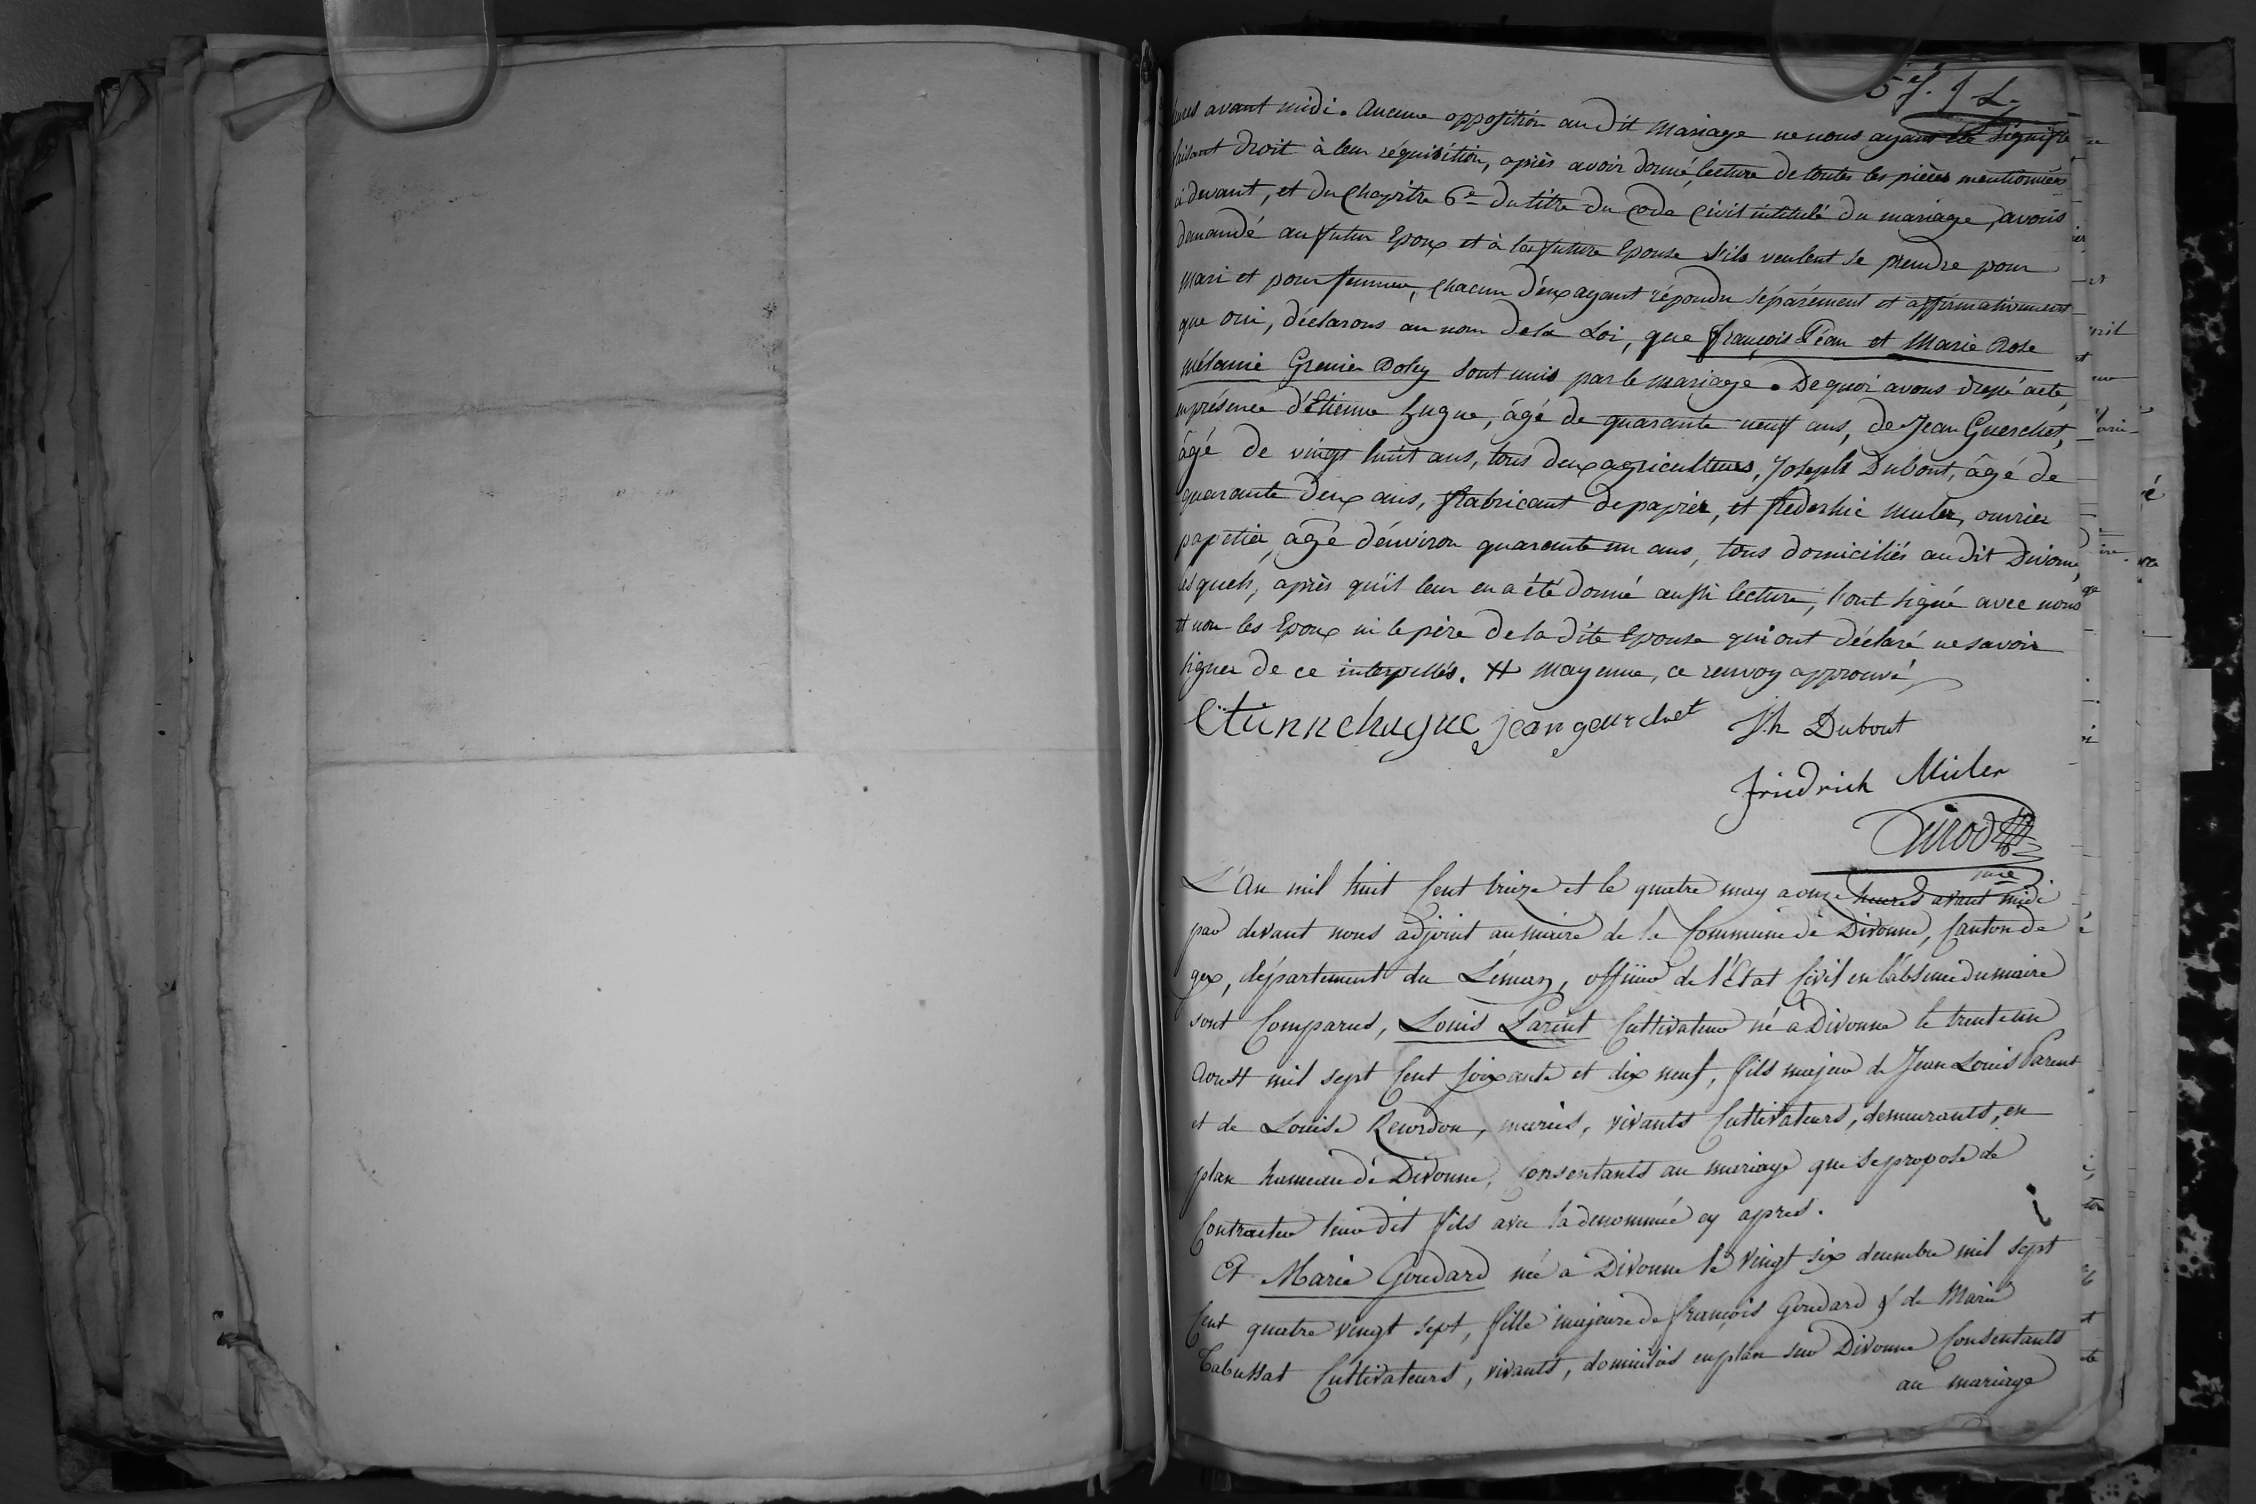 heures avant midi. Aucune opposition au dit Mariage ne nous ayant été signifié
faisant droit à leur réquisition, après avoir donné lecture de toutes les pièces mentionnées
ci devant, et du Chapitre 6e du titre du Code Civil intitulé du mariage, avons
demandé au futur Epoux et à la future Epouse s'ils veulent se prendre pour
Mari et pour femme, chacun d'eux ayant répondu séparément et affirmativement
que oui, déclarons au nom de la Loi, que françois Péan et Marie Rose
mélanie Grenier Doley sont unis par le mariage. De quoi avons dressé acte,
en présence d'Etienne hugue, âgé de quarante neuf ans, de Jean Guerchet,
âgé de vingt huit ans, tous deux agriculteurs, Joseph Dubout, âgé de
quarante deux ans, fabricant de papier, et frederhic muler, ouvrier
papetier, âgé d'environ quarante un ans, tous domiciliés au dit Divonne,
lesquels, après qu'il leur en a été donné aussi lecture, l'ont signé avec nous
et non les Epoux ni le père de la dite Epouse qui ont déclaré ne savoir
signer de ce interpellés. # mayenne, ce renvoy approuvé
Etienne hugue jean guerchet Jh Dubout
friedrich Muler
Girod
L'An mil huit Cent treize et le quatre may a onze heures avant midi
par devant nous adjoint au maire de la Commune de Divonne, Canton de
gex, département du Léman, officier de l'Etat Civil en l'absence du maire
sont Comparus, Louis Parent Cultivateur né a Divonne le trente un
Aoust mil sept Cent soixante et dix neuf, fils majeur de Jean Louis Parent
et de Louise Reverdon, mariés, vivants Cultivateurs, demeurants, en
plan hameau de Divonne, Consentants au mariage que se propose de
Contracter leur dit fils avec la denommée cy apres.
Et Marie Goudard née a Divonne le vingt six decembre mil sept
Cent quatre vingt sept, fille majeure de françois Goudard & de Marie
Tabussat Cultivateurs, vivants, domiciliés en plan sur Divonne Consentants
au mariage